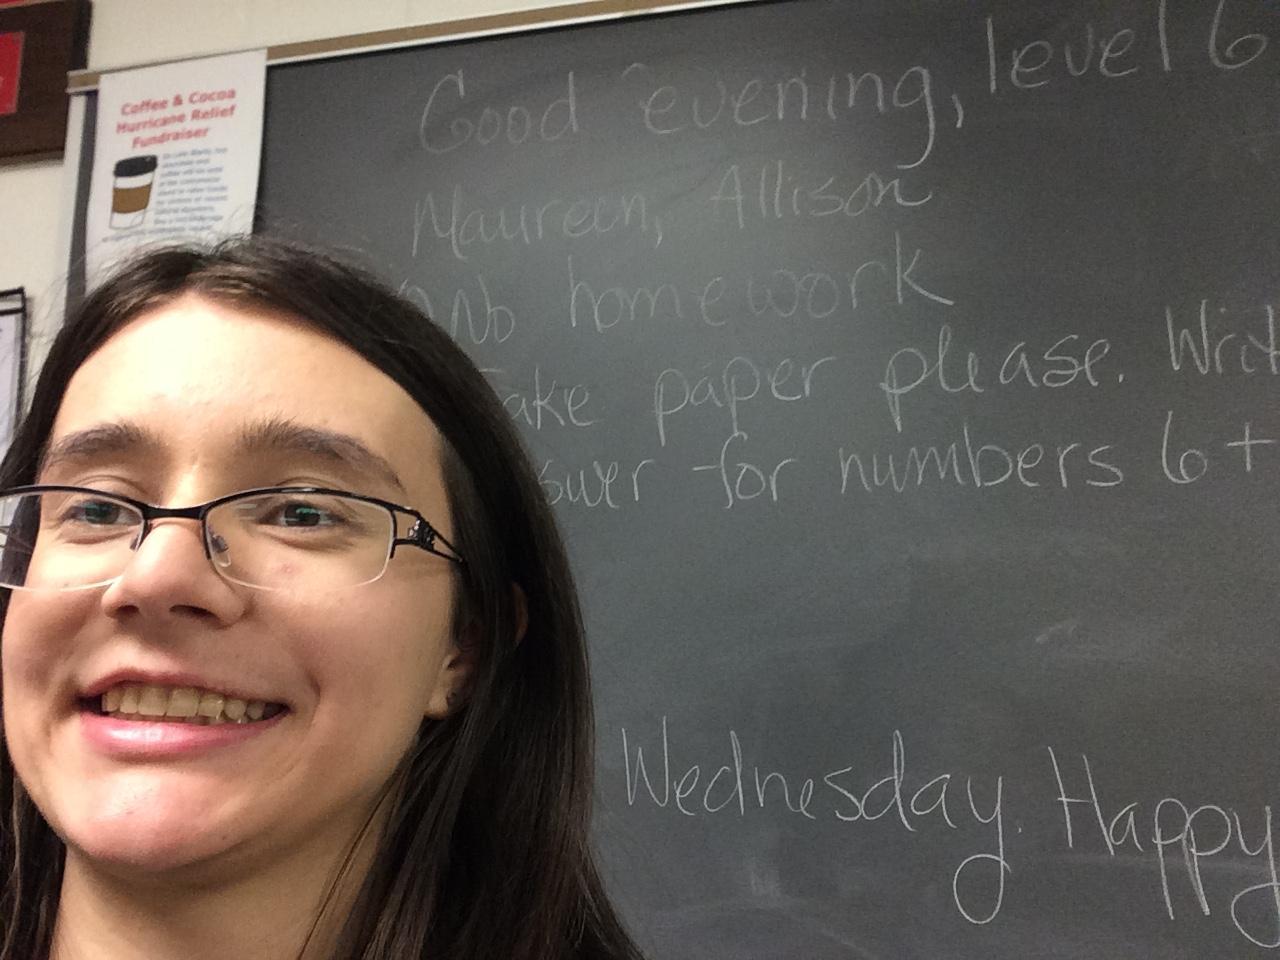 Coffee & Cocoa
Hurricane Relief
Fundraiser
Good evening, level 6
Maureen, Allison
No homework
ake paper please. Writ
swer for numbers 6+
Wednesday. Happy